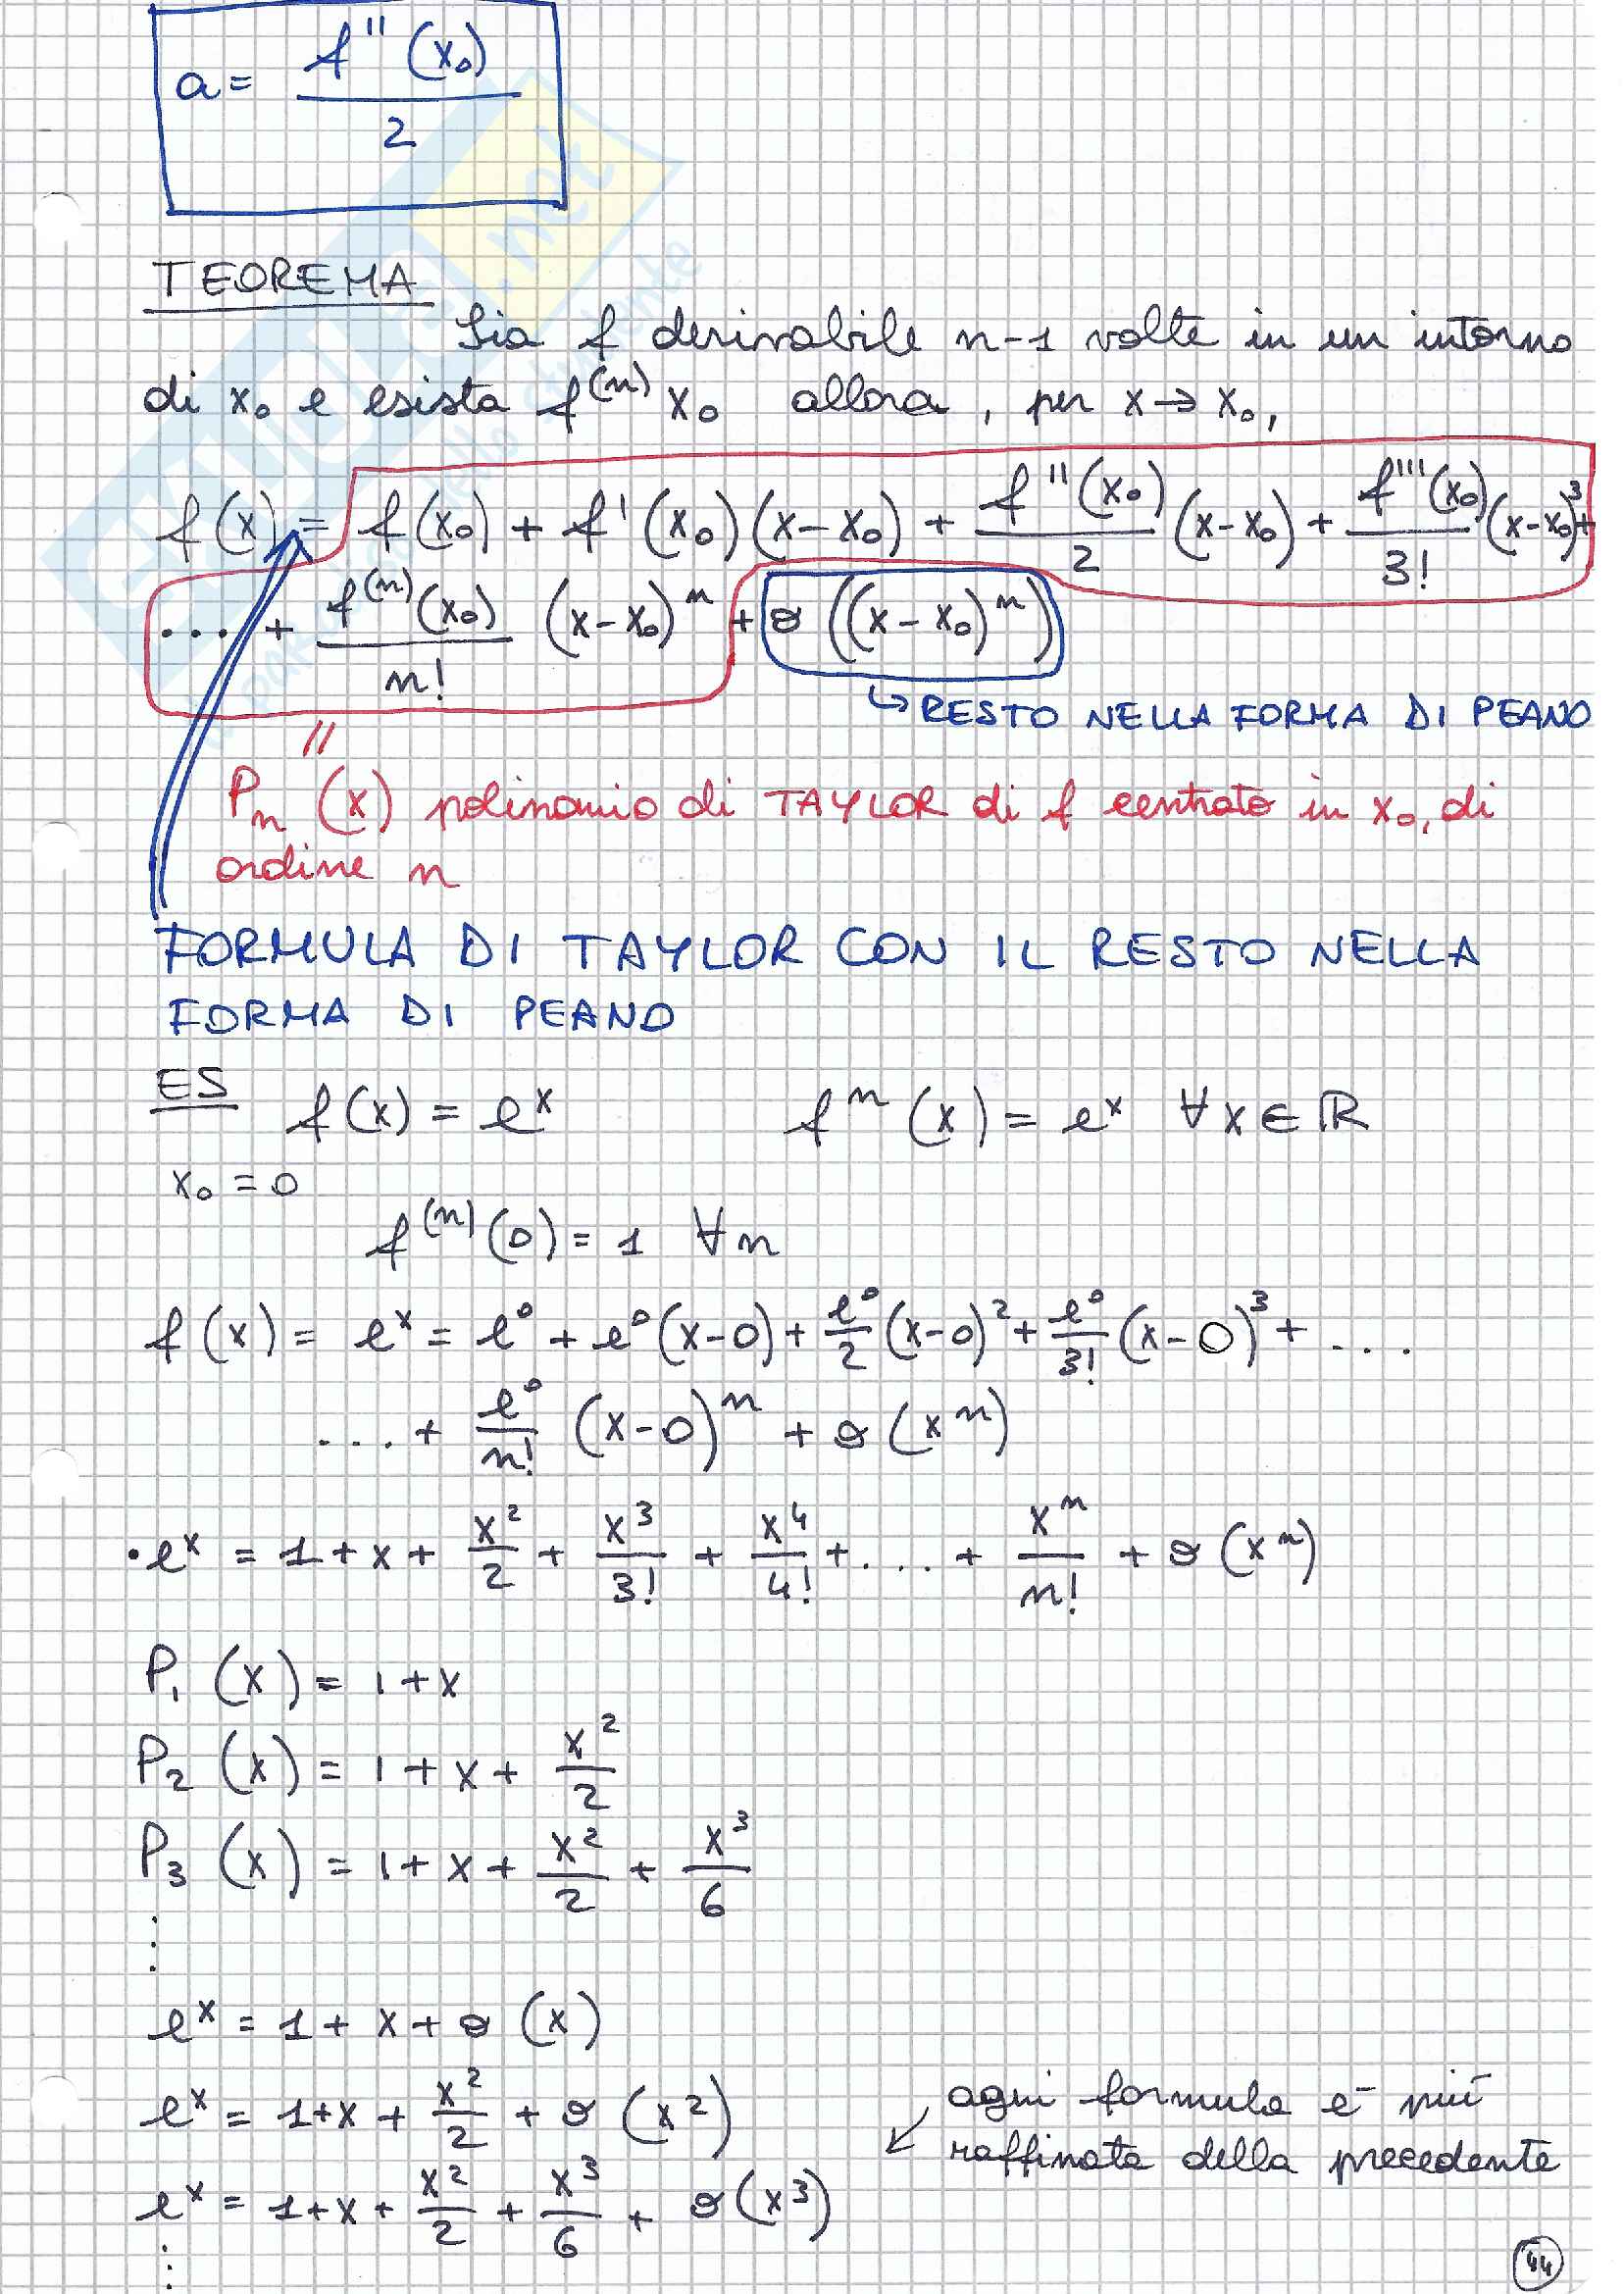 a = f''(x₀)/2
TEOREMA
Sia f derivabile n-1 volte in un intorno
di x₀ e esista f⁽ⁿ⁾x₀ allora, per x→x₀,
f(x) = f(x₀) + f'(x₀)(x-x₀) + f''(x₀)/2 (x-x₀) + f'''(x₀)/3! (x-x₀)³ +
.... + f⁽ⁿ⁾(x₀)/n! (x-x₀)ⁿ + o((x-x₀)ⁿ)
↳ RESTO NELLA FORMA DI PEANO
||
Pₙ(x) polinomio di TAYLOR di f centrato in x₀, di
ordine n
FORMULA DI TAYLOR CON IL RESTO NELLA
FORMA DI PEANO
ES f(x) = eˣ fⁿ(x) = eˣ ∀x∈ℝ
x₀ = 0
f⁽ⁿ⁾(0) = 1 ∀n
f(x) = eˣ = e⁰ + e⁰(x-0) + e⁰/2 (x-0)² + e⁰/3! (x-0)³ + ....
.... + e⁰/n! (x-0)ⁿ + o(xⁿ)
• eˣ = 1 + x + x²/2 + x³/3! + x⁴/4! + .... + xⁿ/n! + o(xⁿ)
P₁(x) = 1 + x
P₂(x) = 1 + x + x²/2
P₃(x) = 1 + x + x²/2 + x³/6
⋮
eˣ = 1 + x + o(x)
eˣ = 1 + x + x²/2 + o(x²)
ogni formula è più
raffinata della precedente
eˣ = 1 + x + x²/2 + x³/6 + o(x³)
⋮
44